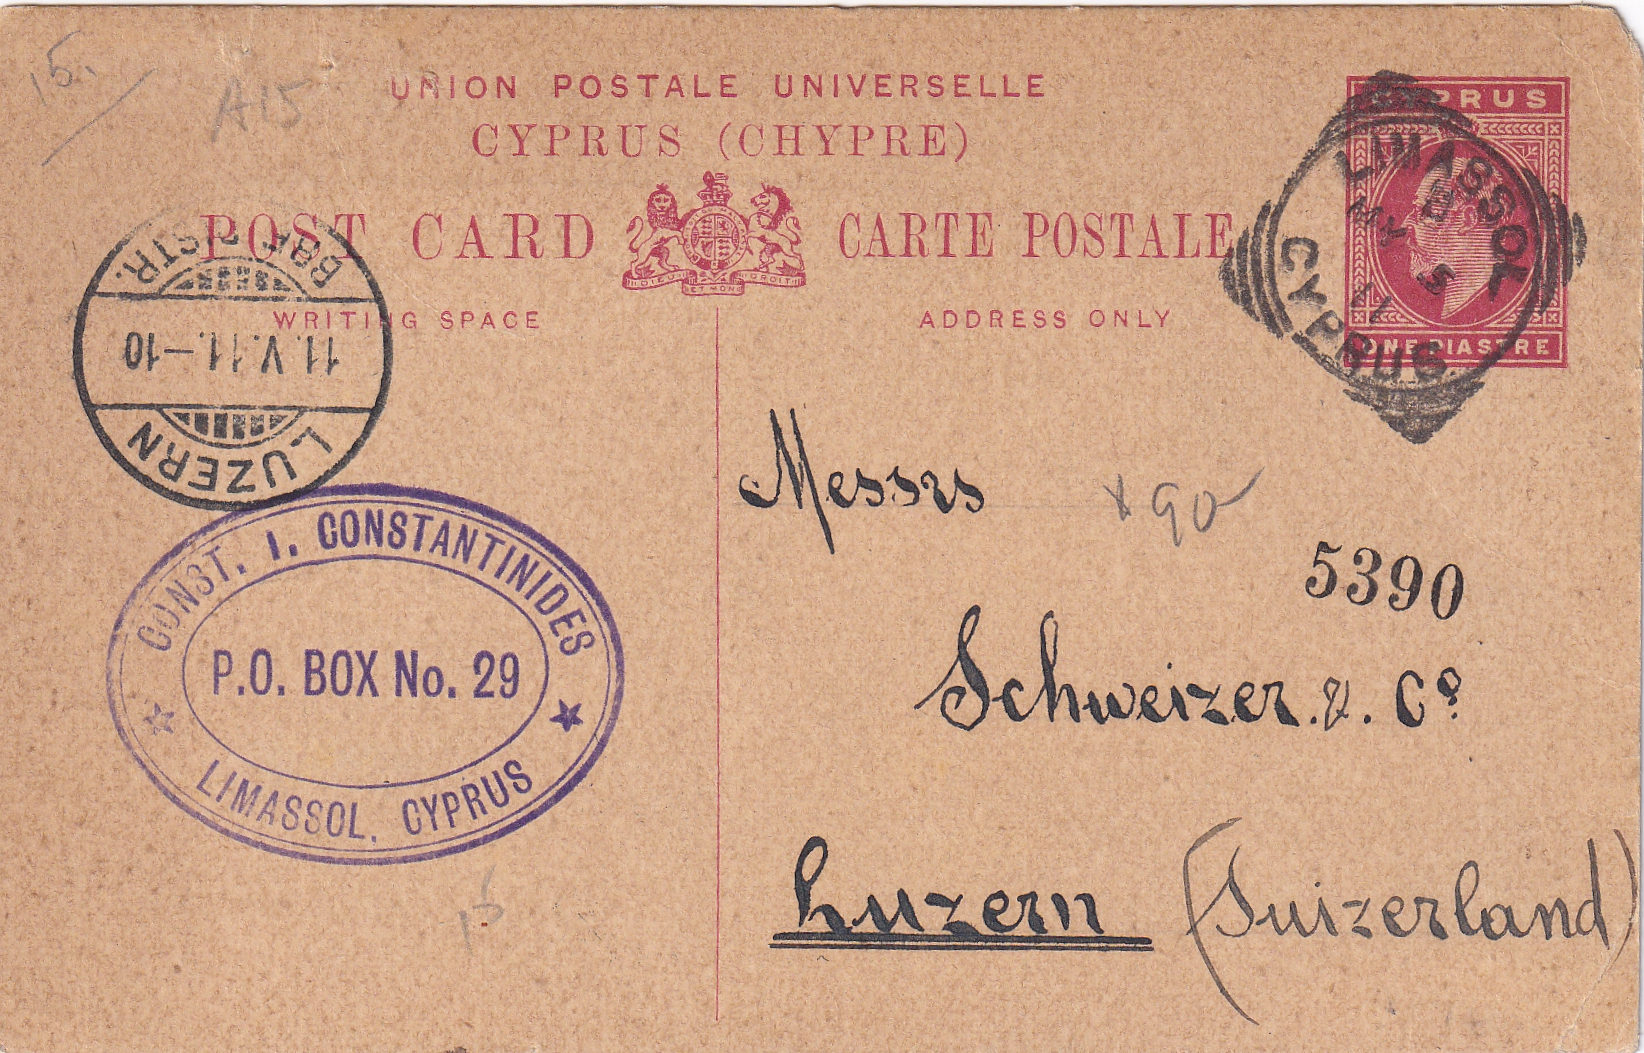 15.
A15
UNION POSTALE UNIVERSELLE
CYPRUS (CHYPRE)
POST CARD
CARTE POSTALE
DIEU ET MON DROIT
WRITING SPACE
ADDRESS ONLY
CYPRUS
ONE PIASTRE
LIMASSOL
MY 5
11
CYPRUS
STR.
11.V.11.–10
LUZERN
CONST. I. CONSTANTINIDES
P.O. BOX No. 29
LIMASSOL, CYPRUS
Messrs
90
5390
Schweizer & Co
Luzern (Suizerland)